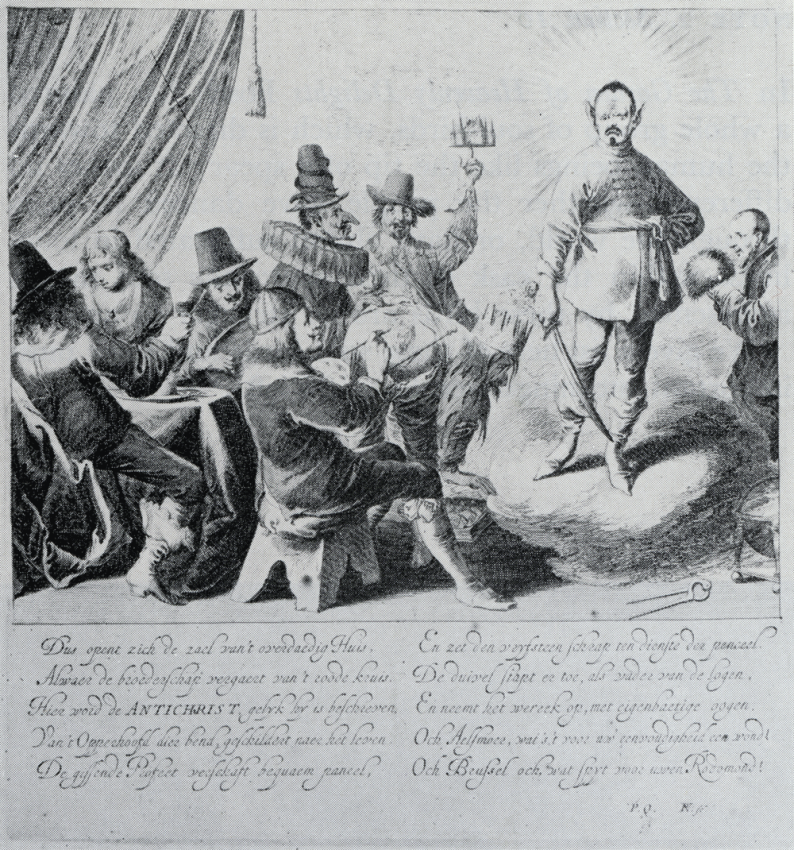 Dus opent zich de zael van't overdaedig Huis.
Alwaer de broederschap vergaert van't roode kruis.
Hier word de ANTICHRIST, gelyk hy is beschreven,
Van't Opperhoofd dier bend, geschildert naer het leven.
De gissende Profeet verschaft bequaem paneel,
En zet den vryfsteen schrap ten dienste den penceel.
De duivel stapt er toe, als vader van de logen,
En neemt het werck op, met eigenbaetige oogen.
Och wat is't voor uw eenvoudigheid een wond!
Och Beussel och, wat spyt voor uwen Rozomond!
P. Q.